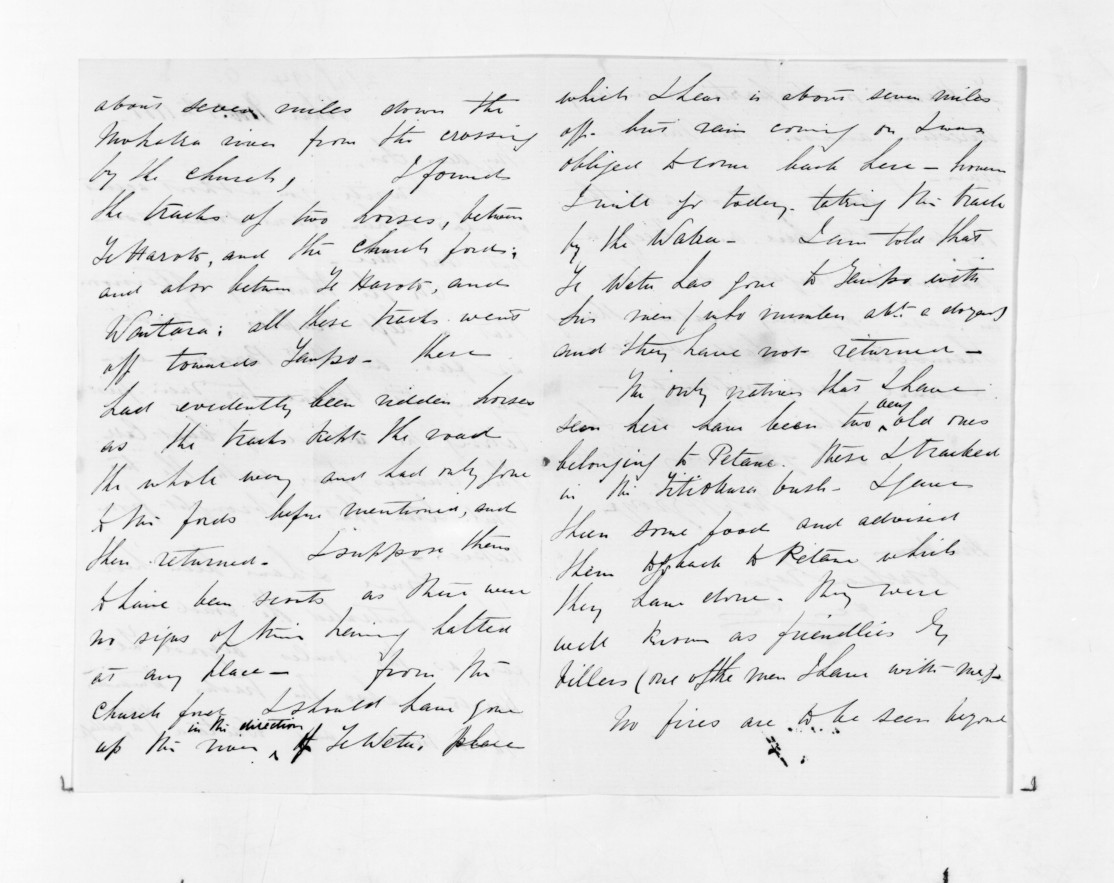 about seven miles down the
Mohaka river from the crossing
by the church, I found
the tracks of two horses, between
Te Haroto, and the church fords;
and also between Te Haroto, and
Waitara; all these tracks went
off towards Taupo - these
had evidently been ridden horses
as the tracks kept the road
the whole way and had only gone
to the fords before mentioned, and
then returned. I suppose them
to have been scouts as there were
no signs of their having halted
at any place - from the
church ford I should have gone
up the river in the direction of Te Wetu, place
which I hear is about seven miles
off - but rain coming on I was
obliged to come back here -
I will go today taking the track
by the Waka - I am told that
Te Wetu has gone to Taupo with
his men (who number abt. a dozen)
and they have not returned -
The only natives that I have
seen here have been two very old ones
belonging to Petane. These I tracked
in the Titiokura bush - I gave
them some food and advised
them to go back to Petane which
they have done - They were
well known as friendlies by
Villers (one of the men I have with me).
No fires are to be seen beyond